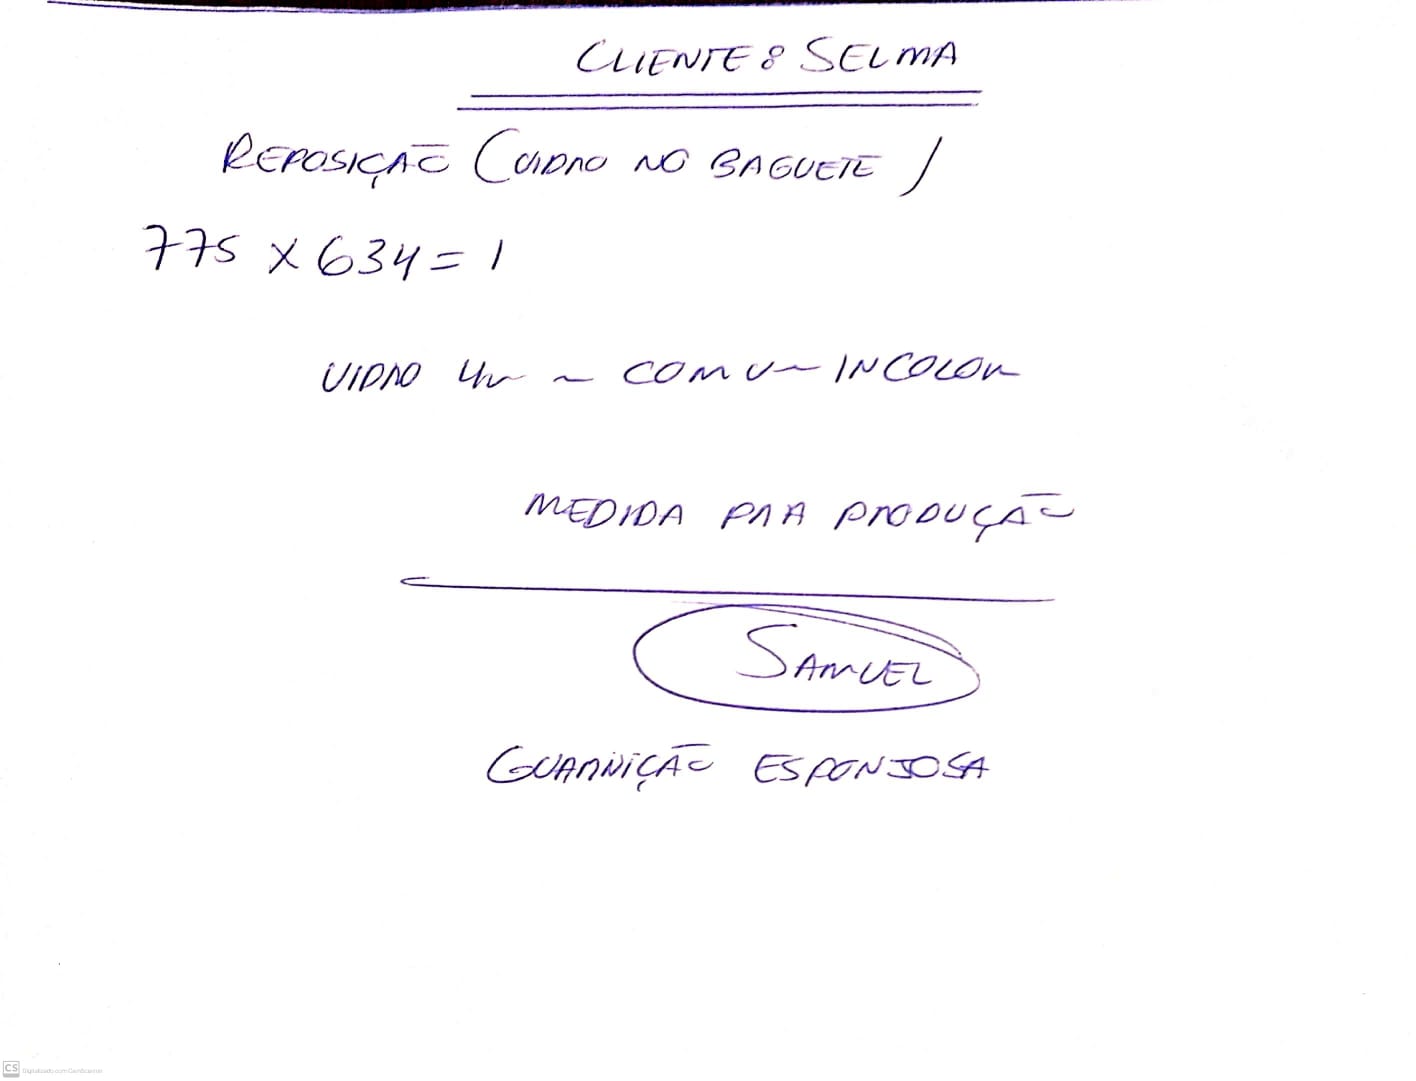 CLIENTE: SELMA
REPOSIÇÃO (VIDRO NO BAGUETE)
775 X 634 = 1
VIDRO 4mm COMUM INCOLOR
MEDIDA PRA PRODUÇÃO
SAMUEL
GUARNIÇÃO ESPONJOSA
CS Digitalizado com CamScanner